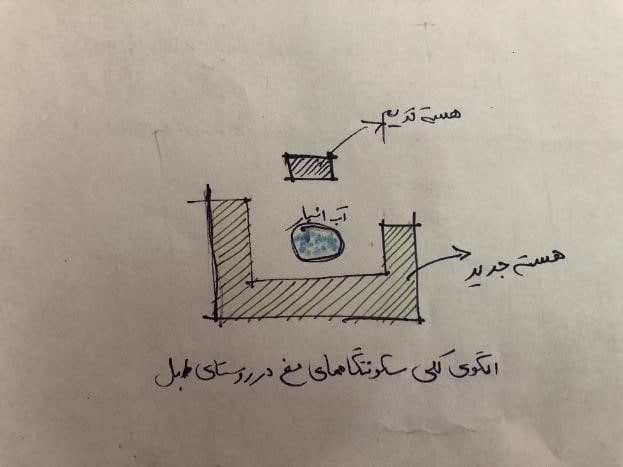 هسته قدیم
آب انبار
هسته جدید
الگوی کلی سکونتگاههای مغ در روستای طبل